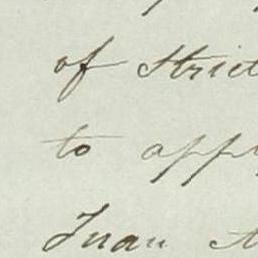 of Strict
to app
Juan